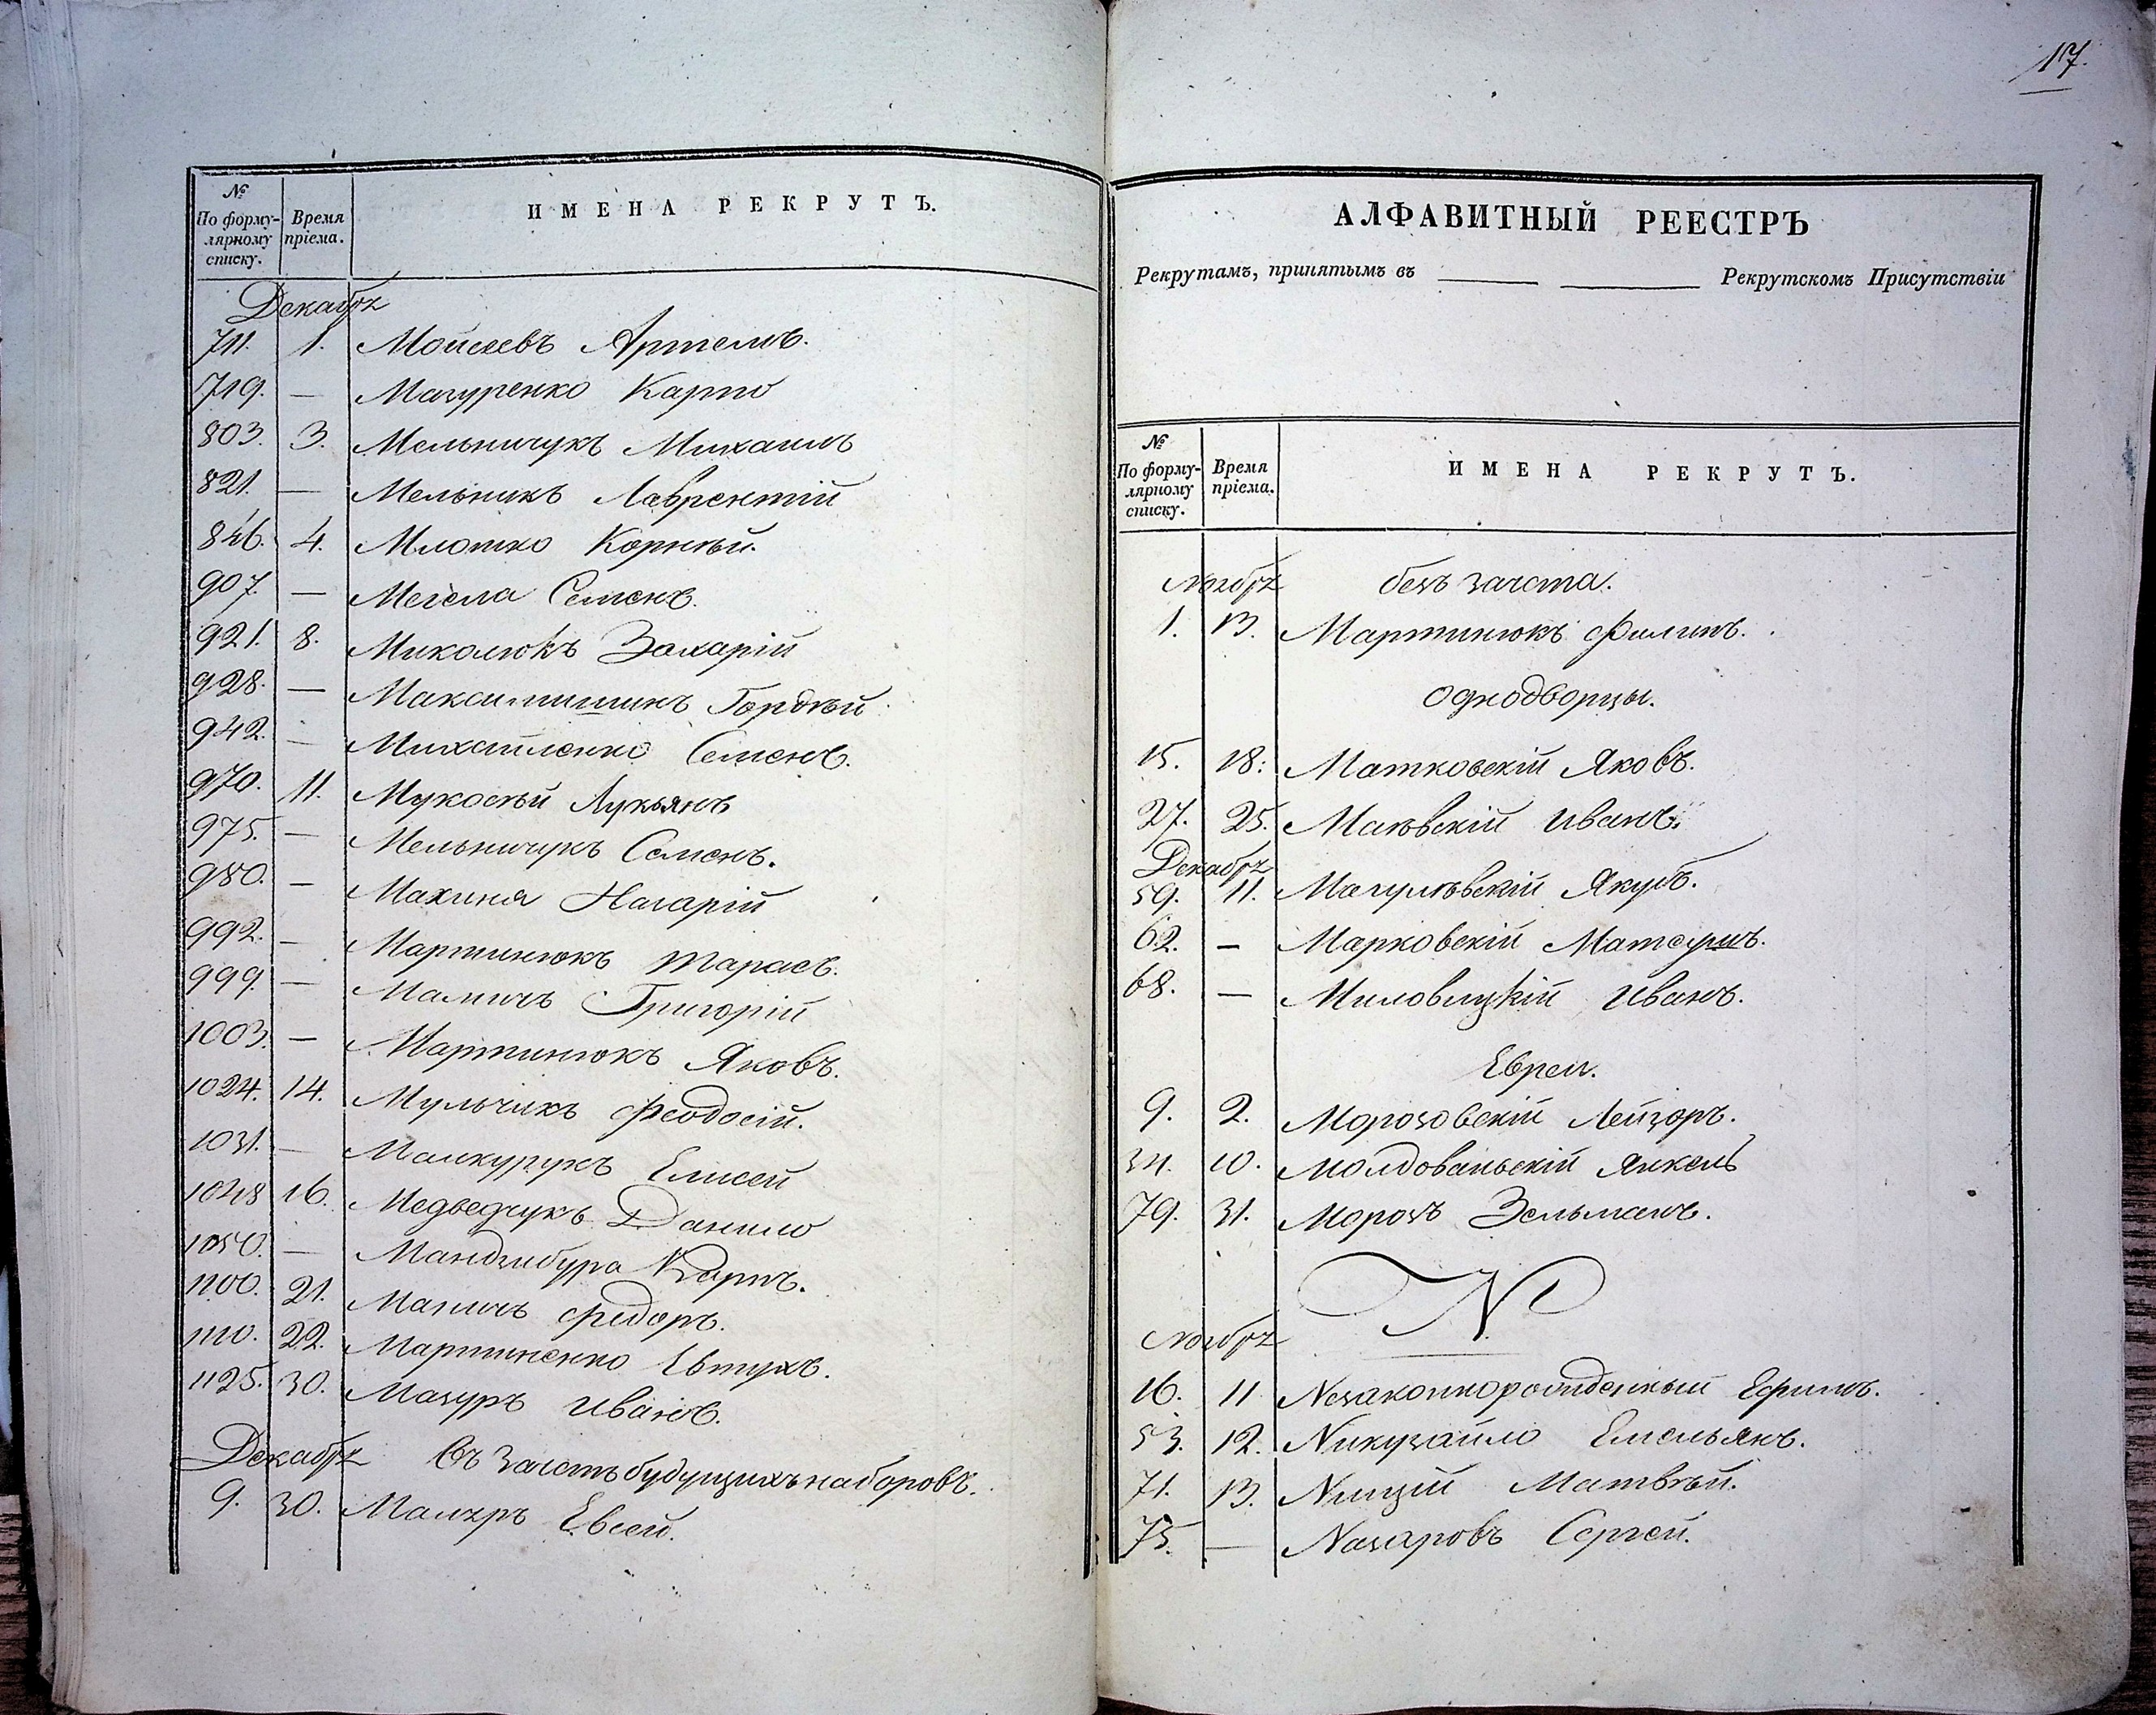 № По форму-лярному списку.
Время пріема.
ИМЕНА РЕКРУТЪ.
Декабрь
711. 1. Мойсеевъ Артемъ.
719. — Мазуренко Карпо
803. 3. Мельничукъ Михаилъ
821. — Мельникъ Лаврентій
846. 4. Млотко Корнѣй.
907. — Мегела Семенъ.
921. 8. Миколюкъ Захарій
928. — Максимишинъ Гордѣй
942. — Михайленко Семенъ.
970. 11. Мукосѣй Лукьянъ
975. — Мельничукъ Семенъ.
980. — Махиня Назарій
992. — Мартинюкъ Тарасъ.
999. — Маличъ Григорій
1003. — Мартинюкъ Яковъ.
1024. 14. Мульчикъ Феодосій.
1031. — Елисей
1048 16. Медведчукъ Данило
1050. — Мандзибура Карпъ.
1100. 21. Федоръ.
1110. 22. Мартиненко Евтухъ.
1125. 30. Мазуръ Иванъ.
Декабрь Въ зачетъ будущихъ наборовъ.
9. 30. Маляръ Евсей.
17.
АЛФАВИТНЫЙ РЕЕСТРЪ
Рекрутамъ, принятымъ въ Рекрутскомъ Присутствіи
№ По форму-лярному списку.
Время пріема.
ИМЕНА РЕКРУТЪ.
Ноябрь безъ зачета.
1. 13. Мартинюкъ Филипъ.
Однодворцы.
15. 18. Матковскій Яковъ.
27. 25. Маѣвскій Иванъ.
Декабрь
59. 11. Якубъ.
62. — Марковскій Матеушъ.
68. — Миловицкій Иванъ.
Евреи.
9. 2. Морозовскій Лейзоръ.
34. 10. Молдованьскій Янкель
79. 31. Морозъ Зельманъ.
N
Ноябрь
16. 11 Nезаконнорожденный Ефимъ.
53. 12. Nикузайло Емельянъ.
71. 13. Nицій Матвѣй.
75. — Nазаровъ Сергей.